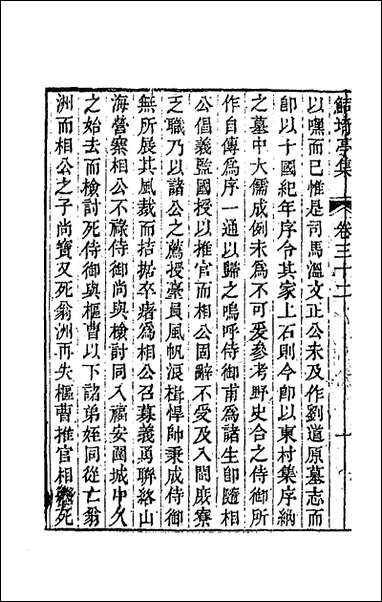 鮚埼亭集 卷三十二 十
以嘿而已惟是司馬溫文正公未及作劉道原墓志而
卽以十國紀年序令其家上石則今卽以東村集序納
之墓中大儒成例未爲不可爰參考野史合之侍御所
作自傳爲序一通以歸之嗚呼侍御甫爲諸生卽隨相
公倡義監國授以推官而相公固辭不受及入閩庶寮
乏職乃以諸公之薦授臺員風帆浪楫悍帥秉成侍御
無所展其風裁而拮据卒瘏爲相公召募義勇聯絡山
海營察相公不祿侍御尚與檢討同入福安圍城中久
之始去而檢討死侍御與樞曹以下諸弟姪同從亡翁
洲而相公之子尚寶又死翁洲再失樞曹推官相繼死